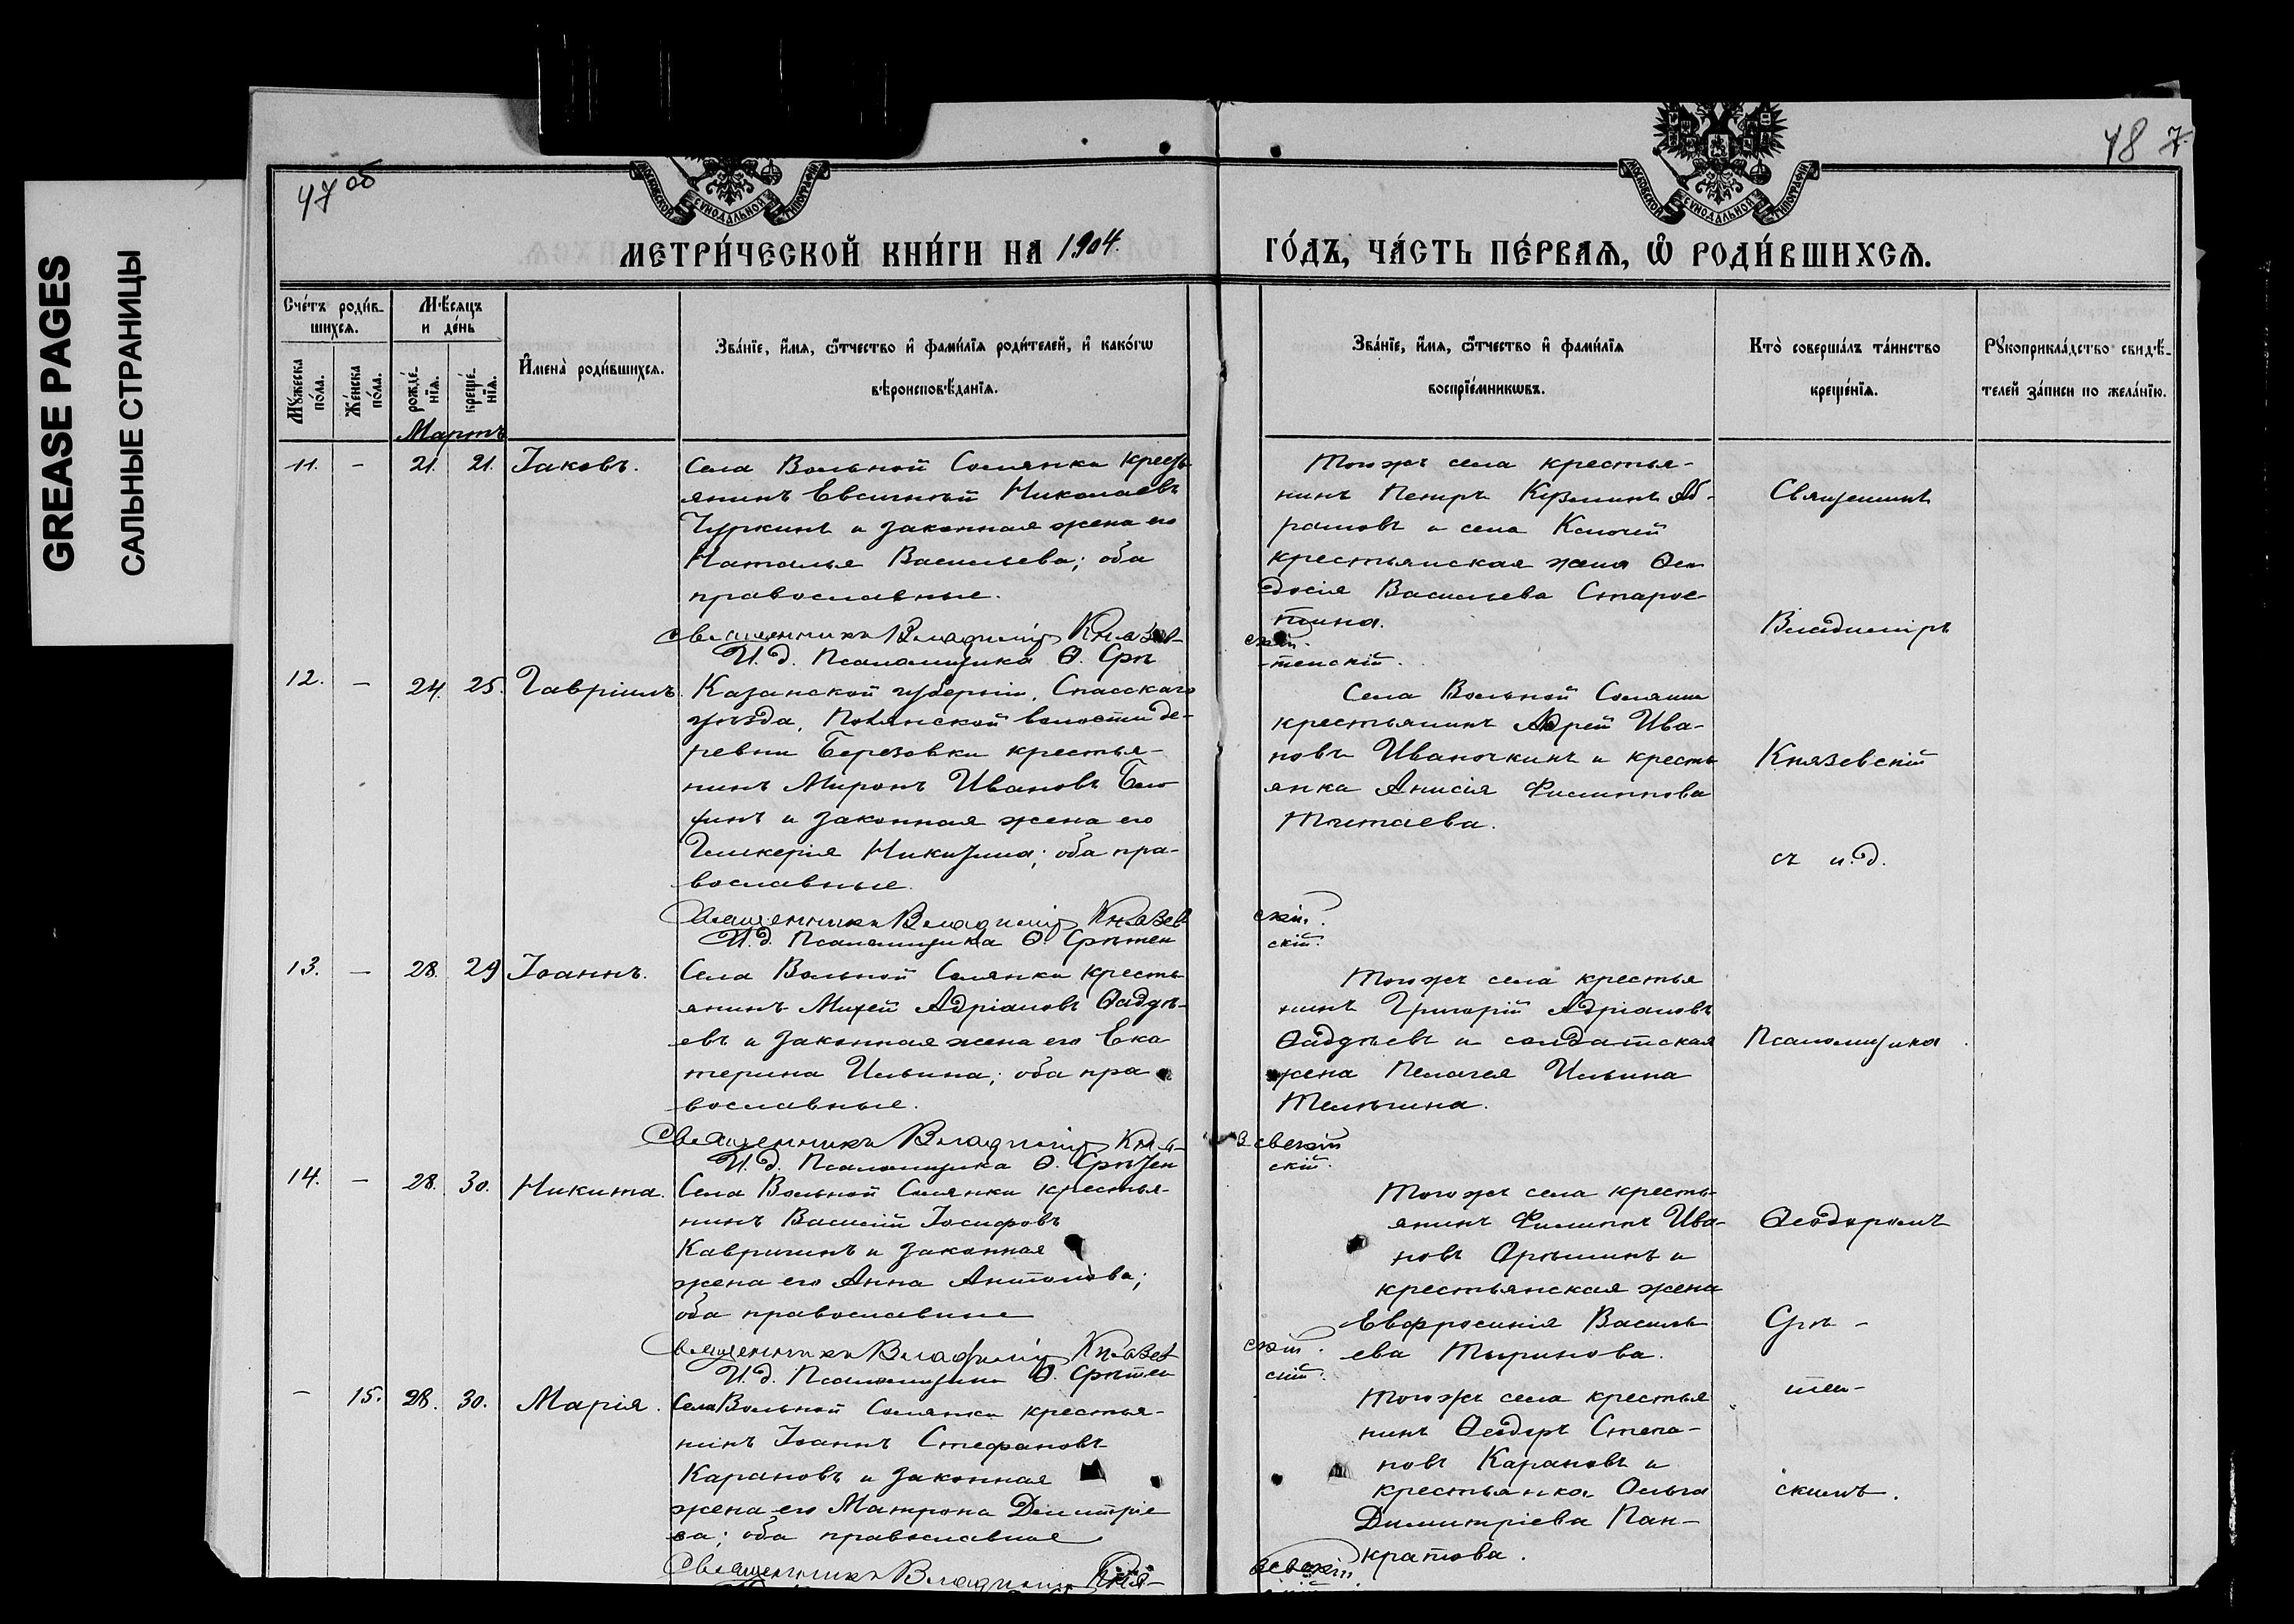 GREASE PAGES
САЛЬНЫЕ СТРАНИЦЫ
47 об
48 7.
МОСКОВСКОЙ СѴНОДАЛЬНОЙ ТИПОГРАФІИ
МОСКОВСКОЙ СѴНОДАЛЬНОЙ ТИПОГРАФІИ
МЕТРИ́ЧЕСКОЙ КНИ́ГИ НА 1904.
ГО́ДЪ, ЧА́СТЬ ПЕ́РВАѦ, Ѽ РОДИ́ВШИХСѦ.
Сче́тъ роди́вшихсѧ.
Мꙋ́жеска по́ла.
Же́нска по́ла.
Мѣ́сѧцъ и де́нь
рожде́нїѧ.
креще́нїѧ.
И҆мена̀ роди́вшихсѧ.
Зва́нїе, и҆́мѧ, ѻ҆́тчество и҆ фами́лїѧ роди́телей, и҆ како́гѡ
вѣроисповѣ́данїѧ.
Зва́нїе, и҆́мѧ, ѻ҆́тчество и҆ фами́лїѧ
воспрїе́мникѡвъ.
Кто̀ соверша́лъ та́инство
креще́нїѧ.
Рꙋкоприкла́дство свидѣ́-
телей за́писи по жела́нїю.
Мартъ
11. - 21. 21. Іаковъ.
Села Вольной Солянки кресть
янинъ Евсигній Николаевъ
Чуркинъ и законная жена его
Наталья Васильева; оба
православные.
Священникъ Владиміръ Князев-
скій.
И. д. Псаломщика Ѳ. Срѣ
-тенскій.
Того же села крестья-
нинъ Петръ Кузминъ Аб-
рамовъ и села Ключей
крестьянская жена Ѳео
досія Васильева Старос-
тина.
12. - 24. 25. Гавріилъ.
Казанской губерніи, Спасскаго
уѣзда, Полянской волости де-
ревни Березовки крестья-
нинъ Миронъ Ивановъ
и законная жена его
Гликерія Никитина; оба пра-
вославные.
Священникъ Владиміръ Князев
скій.
И. д. Псаломщика Ѳ. Срѣтен
скій.
Села Вольной Солянки
крестьянинъ Ив-
новъ Иваночкинъ и кресть
янка Анисія Филиппова
Титаева.
13. - 28. 29 Іоаннъ.
Села Вольной Солянки кресть
янинъ Михей Адріановъ Ѳаддѣ-
евъ и законная жена его Ека
терина Ильина; оба пра
вославные.
Священникъ Владиміръ Кня-
зевскій
И. д. Псаломщика Ѳ. Срѣтен
скій.
Того же села крестья
нинъ Григорій Адріановъ
Ѳаддѣевъ и солдатская
жена Пелагея Ильина
Телѣгина.
14. - 28. 30. Никита.
Села Вольной Солянки крестья-
нинъ Василій Іосифовъ
Кавригинъ и законная
жена его Анна Антонова;
оба православные
Священникъ Владиміръ Князев
скій.
И. д. Псаломщика Ѳ. Срѣтен
скій.
Того же села кресть-
янинъ Филиппъ Ива-
новъ и
крестьянская жена
Евфросинія Василь
ева Тыринова.
- 15. 28. 30. Марія.
Села Вольной Солянки крестья-
нинъ Іоаннъ Стефановъ
Карановъ и законная
жена его Матрона Димитріе
ва; оба православные
Священникъ Владиміръ Кня-
зевскій
Того же села крестья
нинъ Ѳеодоръ Степа-
новъ Карановъ и
крестьянка Ольга
Димитріева Пан-
кратова.
Священникъ
Владиміръ
Князевскій
съ и. д.
Псаломщика
Ѳеодоромъ
Срѣ-
тен-
скимъ.